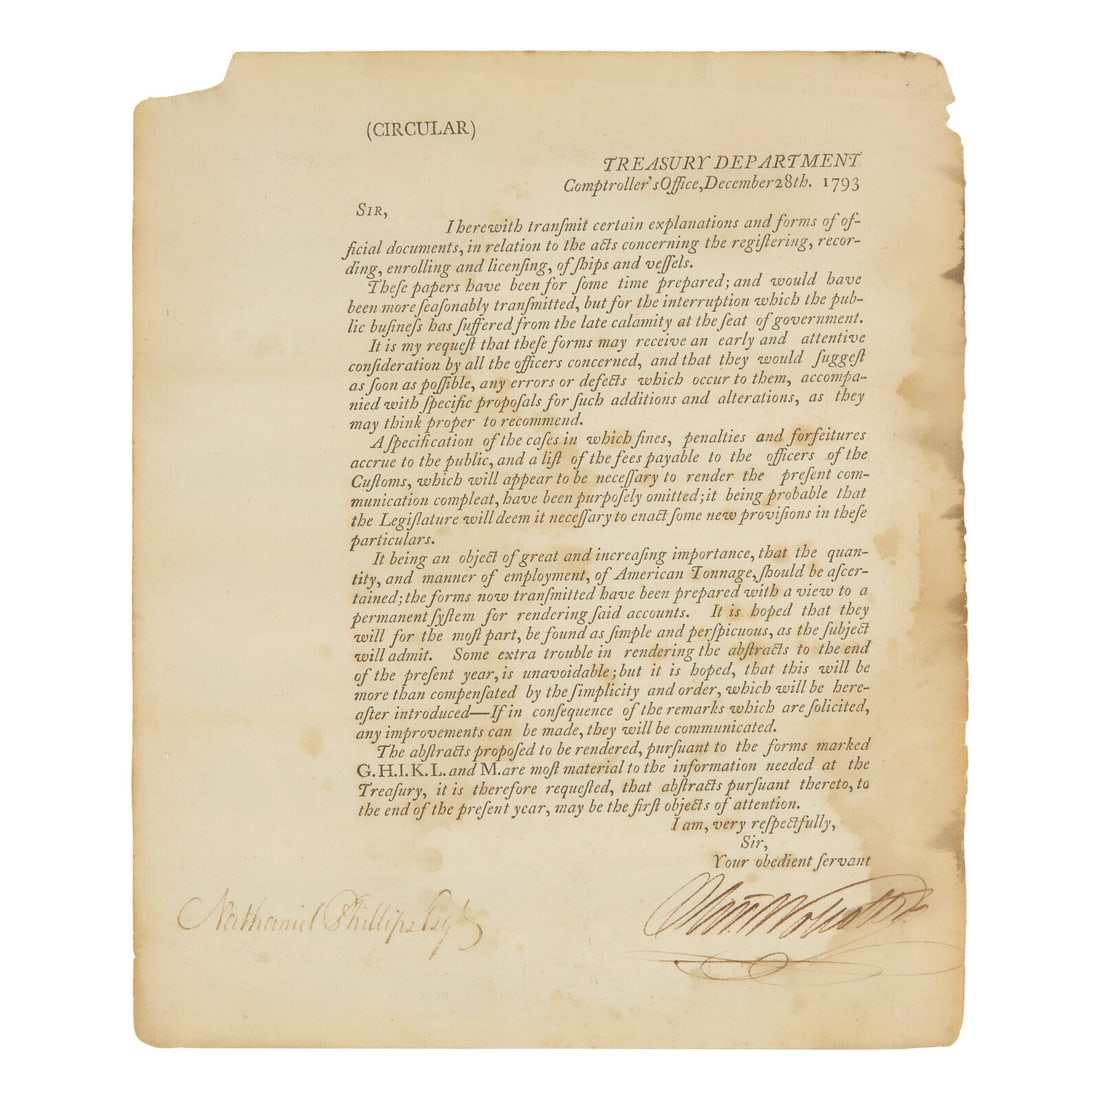 (CIRCULAR)
TREASURY DEPARTMENT
Comptroller's Office, December 28th. 1793
SIR,
I herewith tranſmit certain explanations and forms of of-
ficial documents, in relation to the acts concerning the regiſtering, recor-
ding, enrolling and licenſing, of ſhips and veſſels.
Theſe papers have been for ſome time prepared; and would have
been more ſeaſonably tranſmitted, but for the interruption which the pub-
lic buſineſs has ſuffered from the late calamity at the ſeat of government.
It is my requeſt that theſe forms may receive an early and attentive
conſideration by all the officers concerned, and that they would ſuggeſt
as ſoon as poſſible, any errors or defects which occur to them, accompa-
nied with ſpecific propoſals for ſuch additions and alterations, as they
may think proper to recommend.
A ſpecification of the caſes in which fines, penalties and forfeitures
accrue to the public, and a liſt of the fees payable to the officers of the
Cuſtoms, which will appear to be neceſſary to render the preſent com-
munication compleat, have been purpoſely omitted; it being probable that
the Legiſlature will deem it neceſſary to enact ſome new proviſions in theſe
particulars.
It being an object of great and increaſing importance, that the quan-
tity, and manner of employment, of American Tonnage, ſhould be aſcer-
tained; the forms now tranſmitted have been prepared with a view to a
permanent ſyſtem for rendering ſaid accounts. It is hoped that they
will for the moſt part, be found as ſimple and perſpicuous, as the ſubject
will admit. Some extra trouble in rendering the abſtracts to the end
of the preſent year, is unavoidable; but it is hoped, that this will be
more than compenſated by the ſimplicity and order, which will be here-
after introduced—If in conſequence of the remarks which are ſolicited,
any improvements can be made, they will be communicated.
The abſtracts propoſed to be rendered, purſuant to the forms marked
G. H. I. K. L. and M. are moſt material to the information needed at the
Treaſury, it is therefore requeſted, that abſtracts purſuant thereto, to
the end of the preſent year, may be the firſt objects of attention.
I am, very reſpectfully,
Sir,
Your obedient ſervant
Nathaniel Phillips Esqr
Olivr. Wolcott Jr.